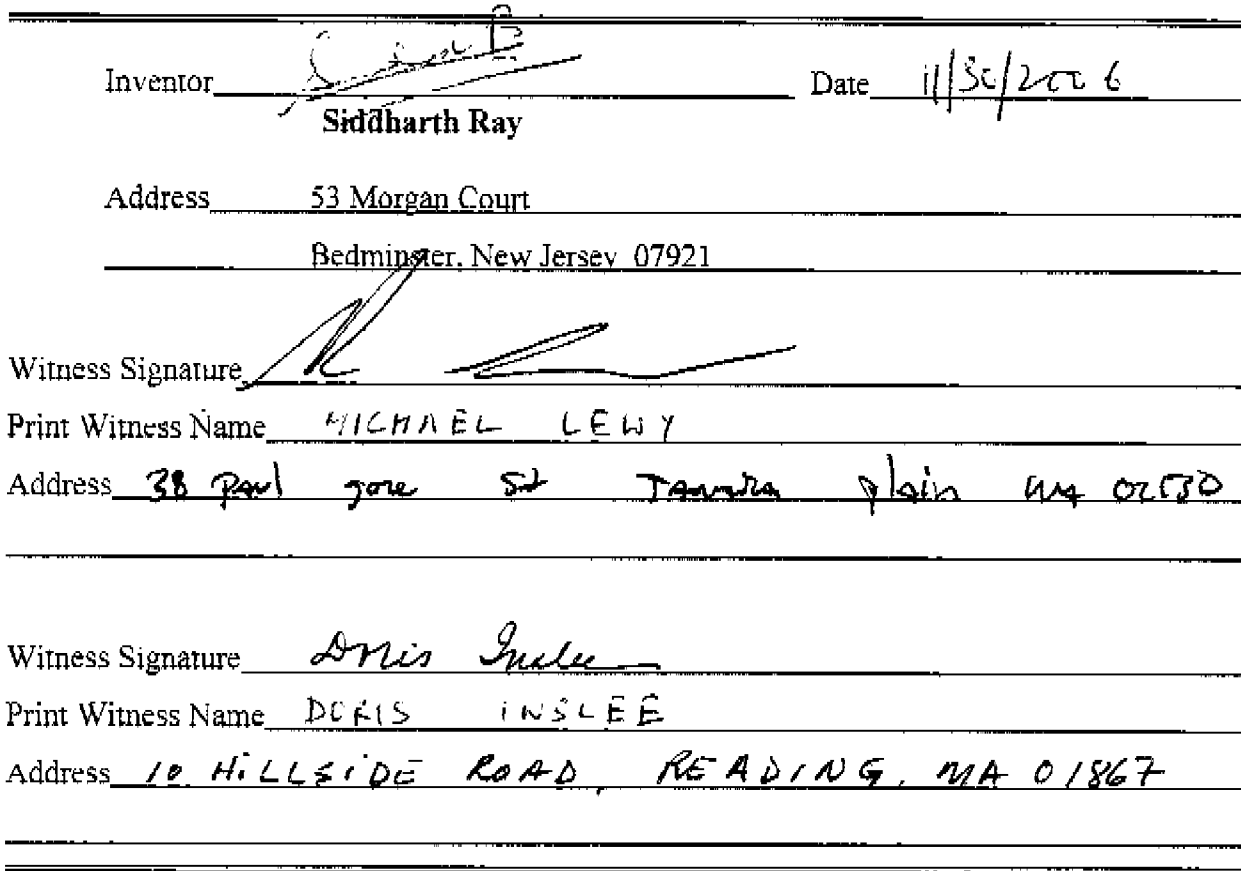 Inventor Date 11/30/2006
Siddharth Ray
Address 53 Morgan Court
Bedminster, New Jersey 07921
Witness Signature
Print Witness Name MICHAEL LEWY
Address 38 Paul gore St Jamaica plain MA 02130
Witness Signature Doris Inslee
Print Witness Name DORIS INSLEE
Address 10 HILLSIDE ROAD, READING, MA 01867